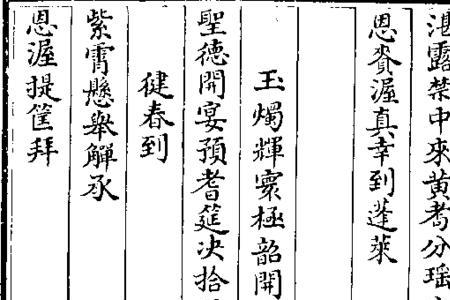 湛露禁中來黄耈分瑶
恩賚渥真幸到蓬萊
玉燭輝寰極韶開
聖徳開宴預耆筵决拾
健春到
紫霄懸舉觶承
恩渥提筐拜